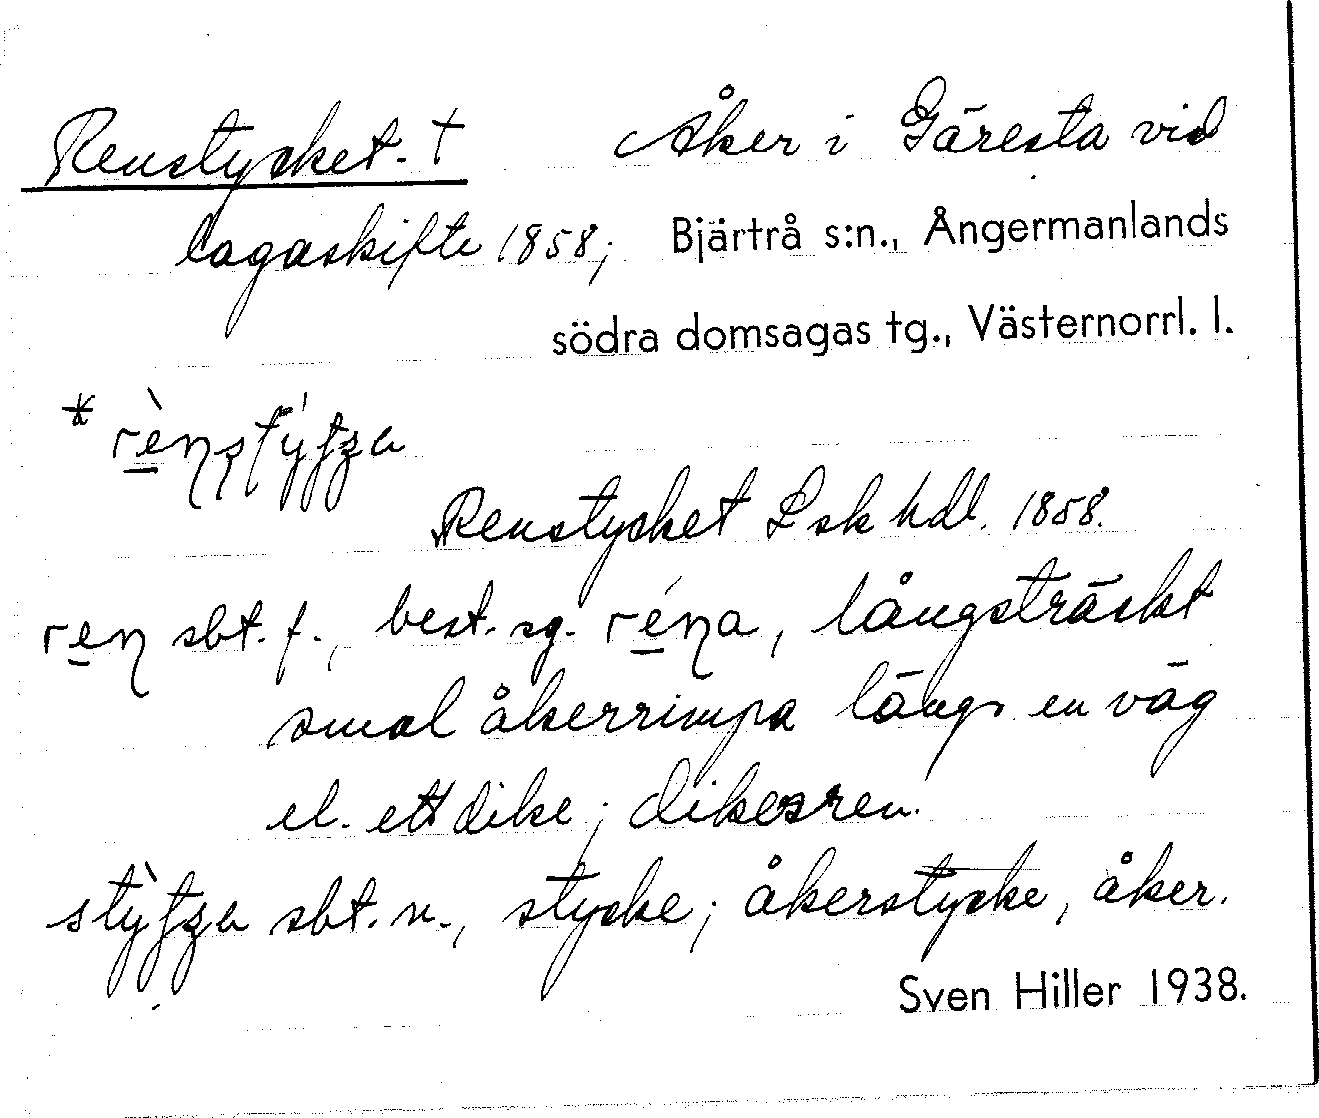 Renstycket. † Åker i Gäresta vid
lagaskifte 1858; Bjärtrå s:n., Ångermanlands
södra domsagas tg., Västernorrl. l.
Renstycket Lsk hdl. 1858.
sbt. f., best. sg. långsträckt
smal åkerrimpa längs en väg
el. ett dike; dikesren.
sbt. n., stycke; åkerstycke, åker.
Sven Hiller 1938.